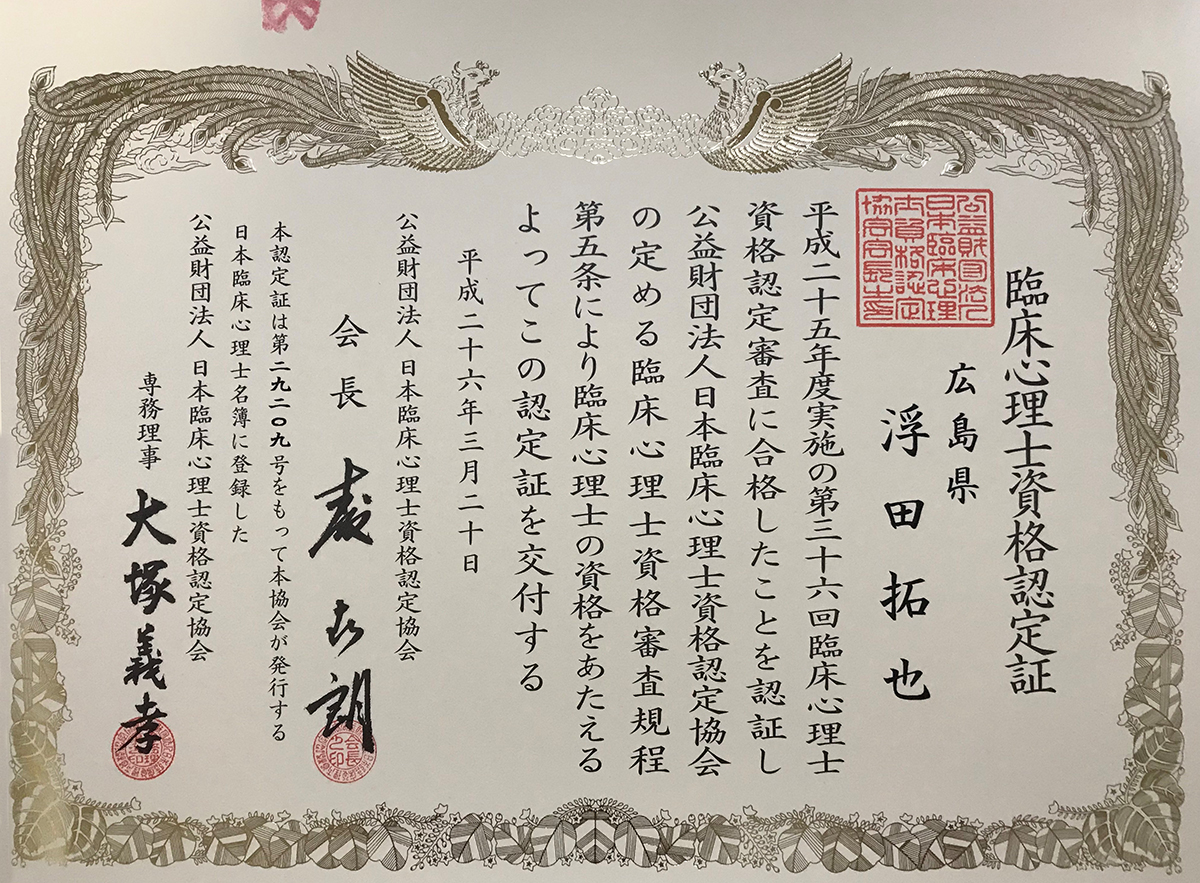 臨床心理士資格認定証
広島県
浮田拓也
公益財団法人
日本臨床心理
士資格認定
協会会長之印
平成二十五年度実施の第三十六回臨床心理士
資格認定審査に合格したことを認証し
公益財団法人日本臨床心理士資格認定協会
の定める臨床心理士資格審査規程
第五条により臨床心理士の資格をあたえる
よってこの認定証を交付する
平成二十六年三月二十日
公益財団法人 日本臨床心理士資格認定協会
会長 朗
本認定証は第二九二〇九号をもって本協会が発行する
日本臨床心理士名簿に登録した
公益財団法人 日本臨床心理士資格認定協会
専務理事 大塚義孝